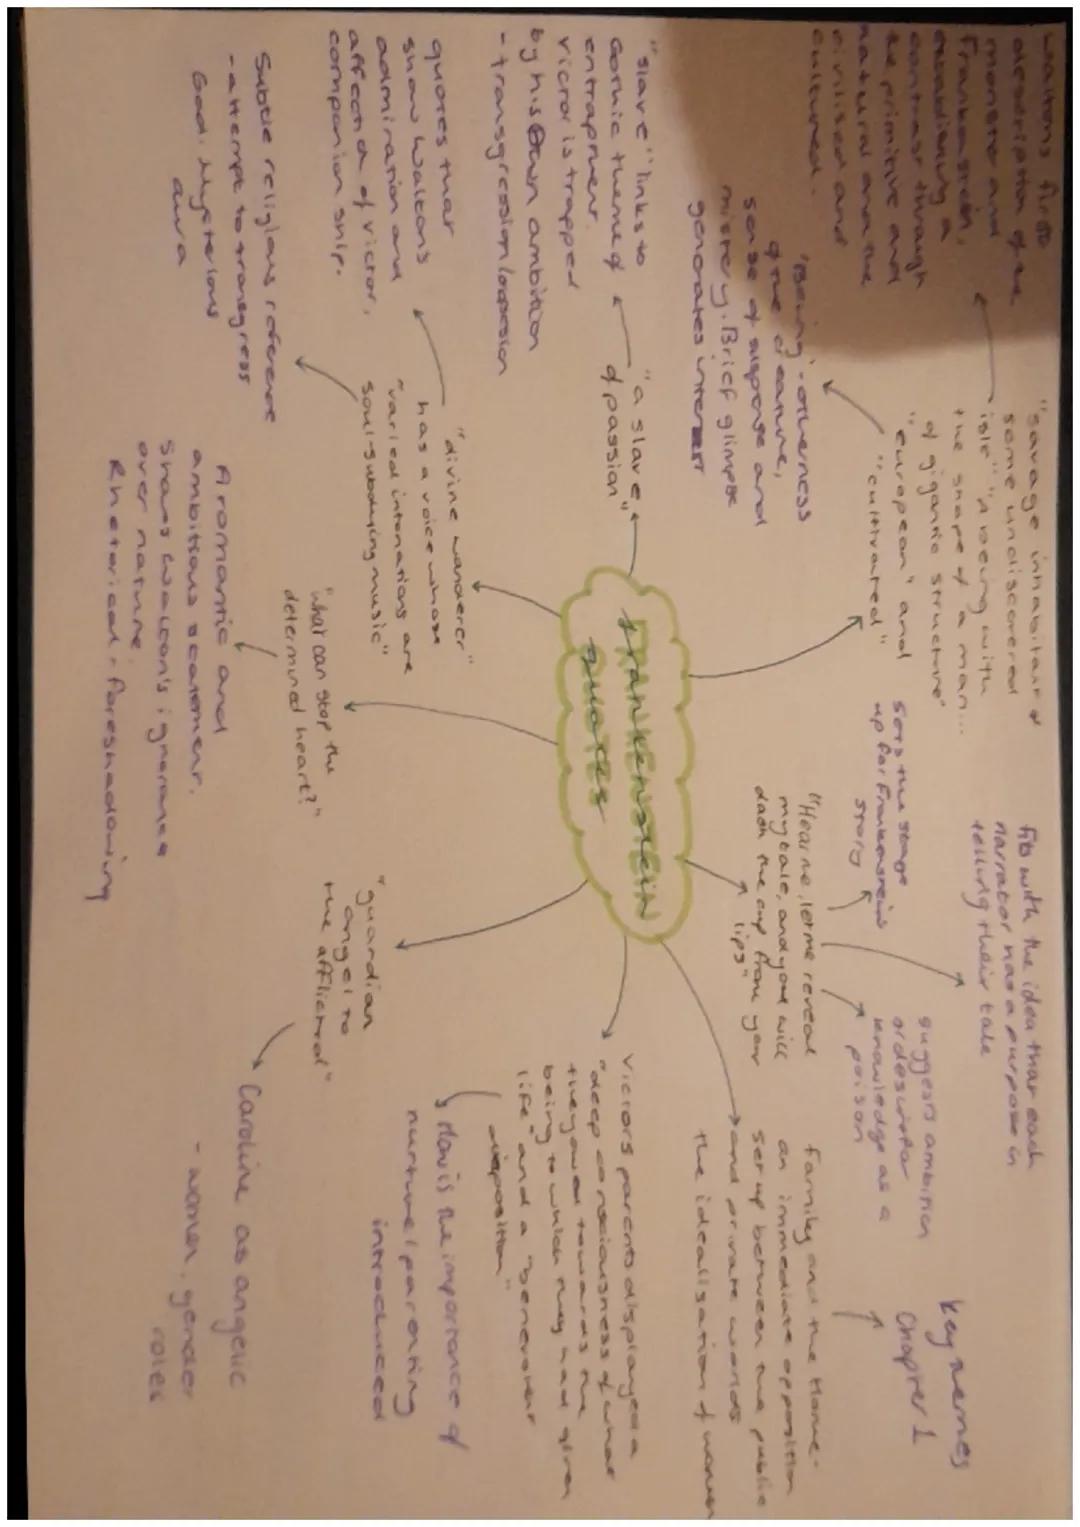 FRANKENSTEIN
QUOTES
"savage inhabitant of
some undiscovered
isle" "A being with
the shape of a man...
of gigantic structure"
"european" and
"cultivated"
waltons first
description of the
monster and
Frankenstein,
establishing a
contrast through
the primitive and
natural and the
civilised and
cultured.
'Being' - otherness
of the creature,
sense of suspense and
mistery. Brief glimpse
generates interest
"Hear me, let me reveal
my tale, and you will
dash the cup from your
lips"
sets the stage
up for Frankensteins
story
fits with the idea that each
narrator has a purpose in
telling their tale
suggests ambition
or desire for
knowledge as a
poison
key themes
Chapter 1
family and the Home-
an immediate opposition
set up between the public
and private worlds
the idealisation of women
Victors parents displayed a
"deep consciousness of what
they owed towards the
being to which they had given
life" and a "benevolent
disposition"
How is the importance of
nurture/parenting
introduced
"guardian
angel to
the afflicted"
Caroline as angelic
- women, gender
roles
"what can stop the
determined heart?"
A romantic and
ambitious statement.
Shows Walton's ignorance
over nature.
Rhetorical - foreshadowing
"divine wanderer"
has a voice whose
"varied intonations are
soul-subduing music"
quotes that
show Waltons
admiration and
affection of victor,
companionship.
Subtle religious reference
- attempt to transgress
God. Mysterious
aura
"a slave
of passion"
"slave" links to
Gothic theme of
entrapment.
victor is trapped
by his own ambition
- transgression/obsession